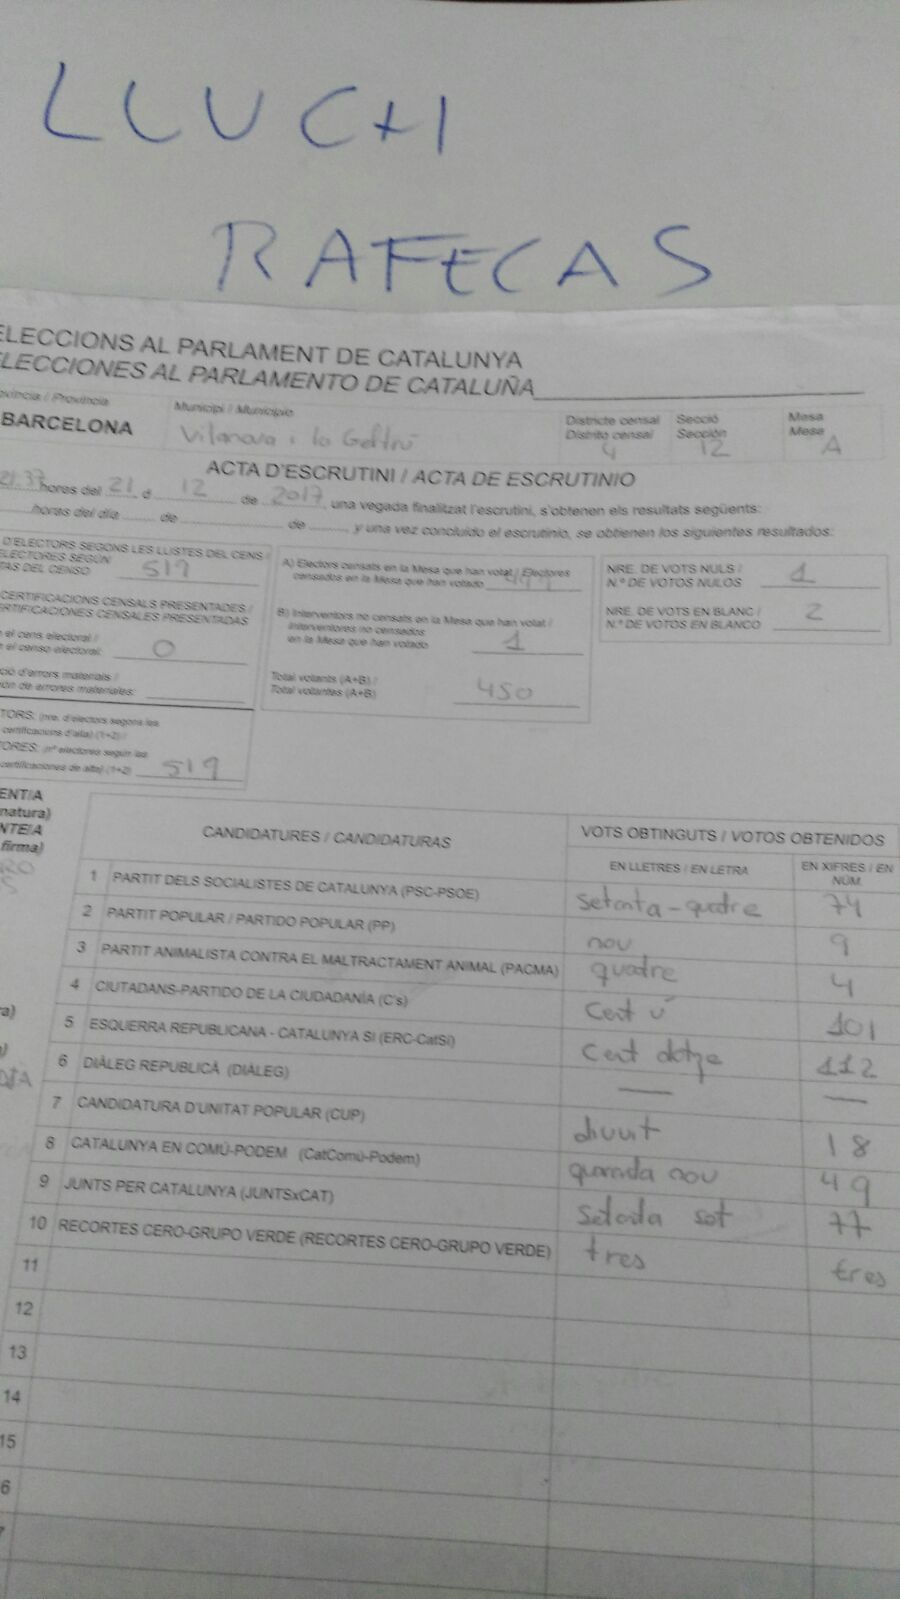 LLUCH
RAFECAS
ELECCIONS AL PARLAMENT DE CATALUNYA
ELECCIONES AL PARLAMENTO DE CATALUÑA
ovíncia / Provincia
BARCELONA
Municipi / Municipio
Vilanova i la Geltrú
Districte censal
Distrito censal
4
Secció
Sección
12
Mesa
Mesa
A
ACTA D'ESCRUTINI / ACTA DE ESCRUTINIO
21:37 hores del 21 d 12 de 2017, una vegada finalitzat l'escrutini, s'obtenen els resultats següents:
horas del día de de y una vez concluido el escrutinio, se obtienen los siguientes resultados:
D'ELECTORS SEGONS LES LLISTES DEL CENS /
ELECTORES SEGÚN
TAS DEL CENSO 519
CERTIFICACIONS CENSALS PRESENTADES /
ERTIFICACIONES CENSALES PRESENTADAS
n el cens electoral /
n el censo electoral: 0
ció d'errors materials /
ión de errores materiales:
TORS: (nre. d'electors segons les
certificacions d'alta) (1+2) /
TORES: (nº electores según las
certificaciones de alta) (1+2) 519
A) Electors censats en la Mesa que han votat / Electores
censados en la Mesa que han votado 449
B) Interventors no censats en la Mesa que han votat /
Interventores no censados
en la Mesa que han votado 1
Total votants (A+B) /
Total votantes (A+B) 450
NRE. DE VOTS NULS /
N.º DE VOTOS NULOS 1
NRE. DE VOTS EN BLANC /
N.º DE VOTOS EN BLANCO 2
ENT/A
natura)
NTE/A
firma)
CANDIDATURES / CANDIDATURAS
VOTS OBTINGUTS / VOTOS OBTENIDOS
EN LLETRES / EN LETRA
EN XIFRES / EN
NÚM.
1 PARTIT DELS SOCIALISTES DE CATALUNYA (PSC-PSOE) setanta-quatre 74
2 PARTIT POPULAR / PARTIDO POPULAR (PP) nou 9
3 PARTIT ANIMALISTA CONTRA EL MALTRACTAMENT ANIMAL (PACMA) quatre 4
4 CIUTADANS-PARTIDO DE LA CIUDADANÍA (C's) Cent ú 101
5 ESQUERRA REPUBLICANA - CATALUNYA SÍ (ERC-CatSí) Cent dotze 112
6 DIÀLEG REPUBLICÀ (DIÀLEG) — —
7 CANDIDATURA D'UNITAT POPULAR (CUP) divuit 18
8 CATALUNYA EN COMÚ-PODEM (CatComú-Podem) quaranta nou 49
9 JUNTS PER CATALUNYA (JUNTSxCAT) Setanta set 77
10 RECORTES CERO-GRUPO VERDE (RECORTES CERO-GRUPO VERDE) tres tres
11
12
13
14
15
6
7